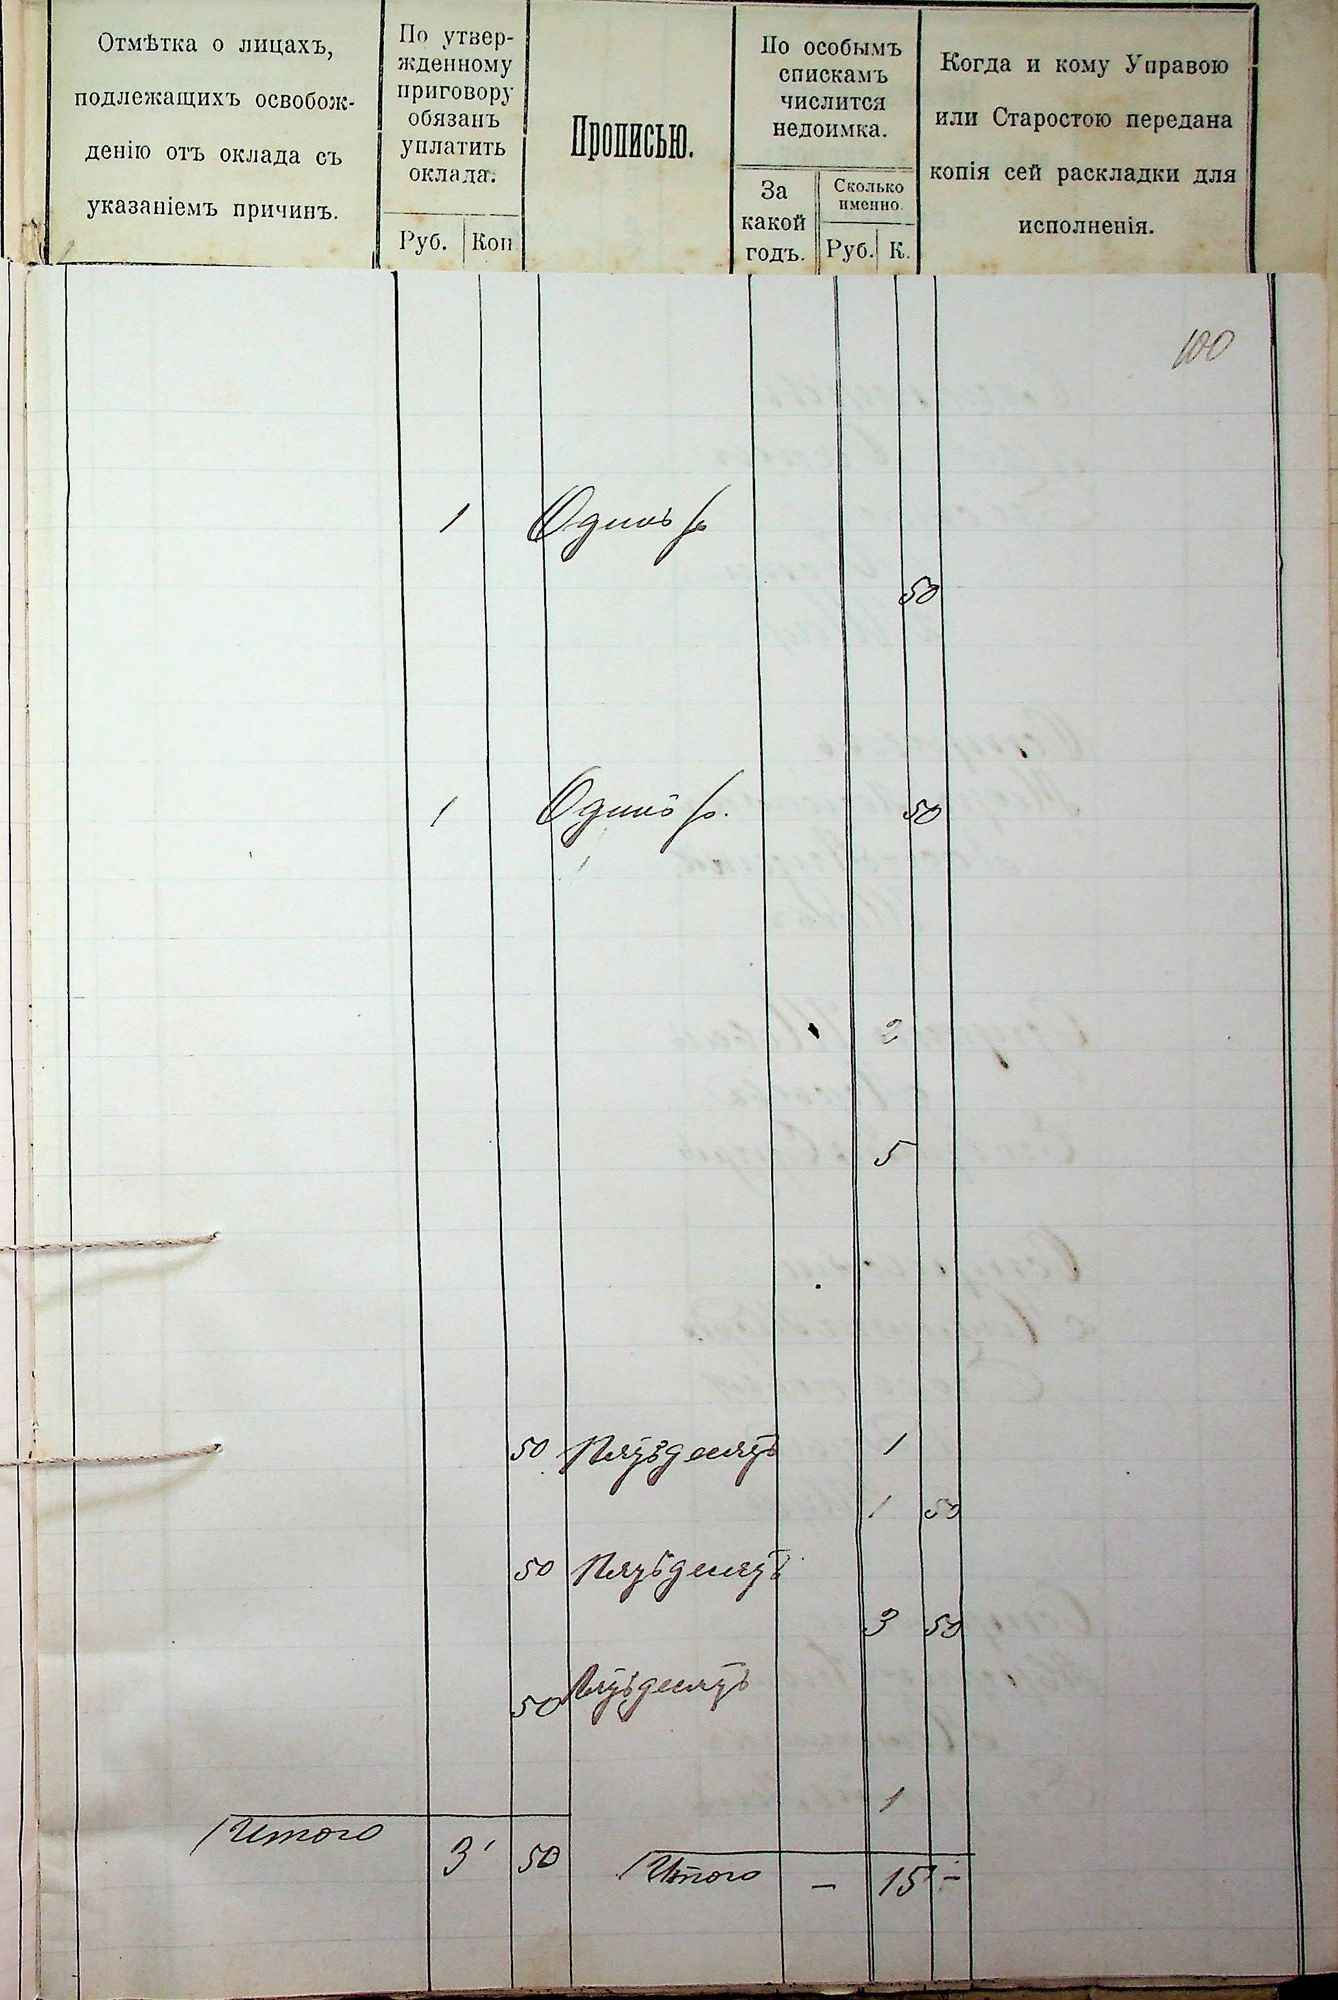 Отмѣтка о лицахъ,
подлежащихъ освобож-
денію отъ оклада съ
указаніемъ причинъ.
По утвер-
жденному
приговору
обязанъ
уплатить
оклада.
Руб. Коп
Прописью.
По особымъ
спискамъ
числится
недоимка.
За
какой
годъ.
Сколько
именно.
Руб. К.
Когда и кому Управою
или Старостою передана
копія сей раскладки для
исполненія.
100
1 Одинъ р
50
1 Одинъ р. 50
2
5
50 Пятьдесятъ 1
1 50
50 Пятьдесятъ
3 50
50 Пятьдесятъ
1
Итого 3 50
Итого - 15 -